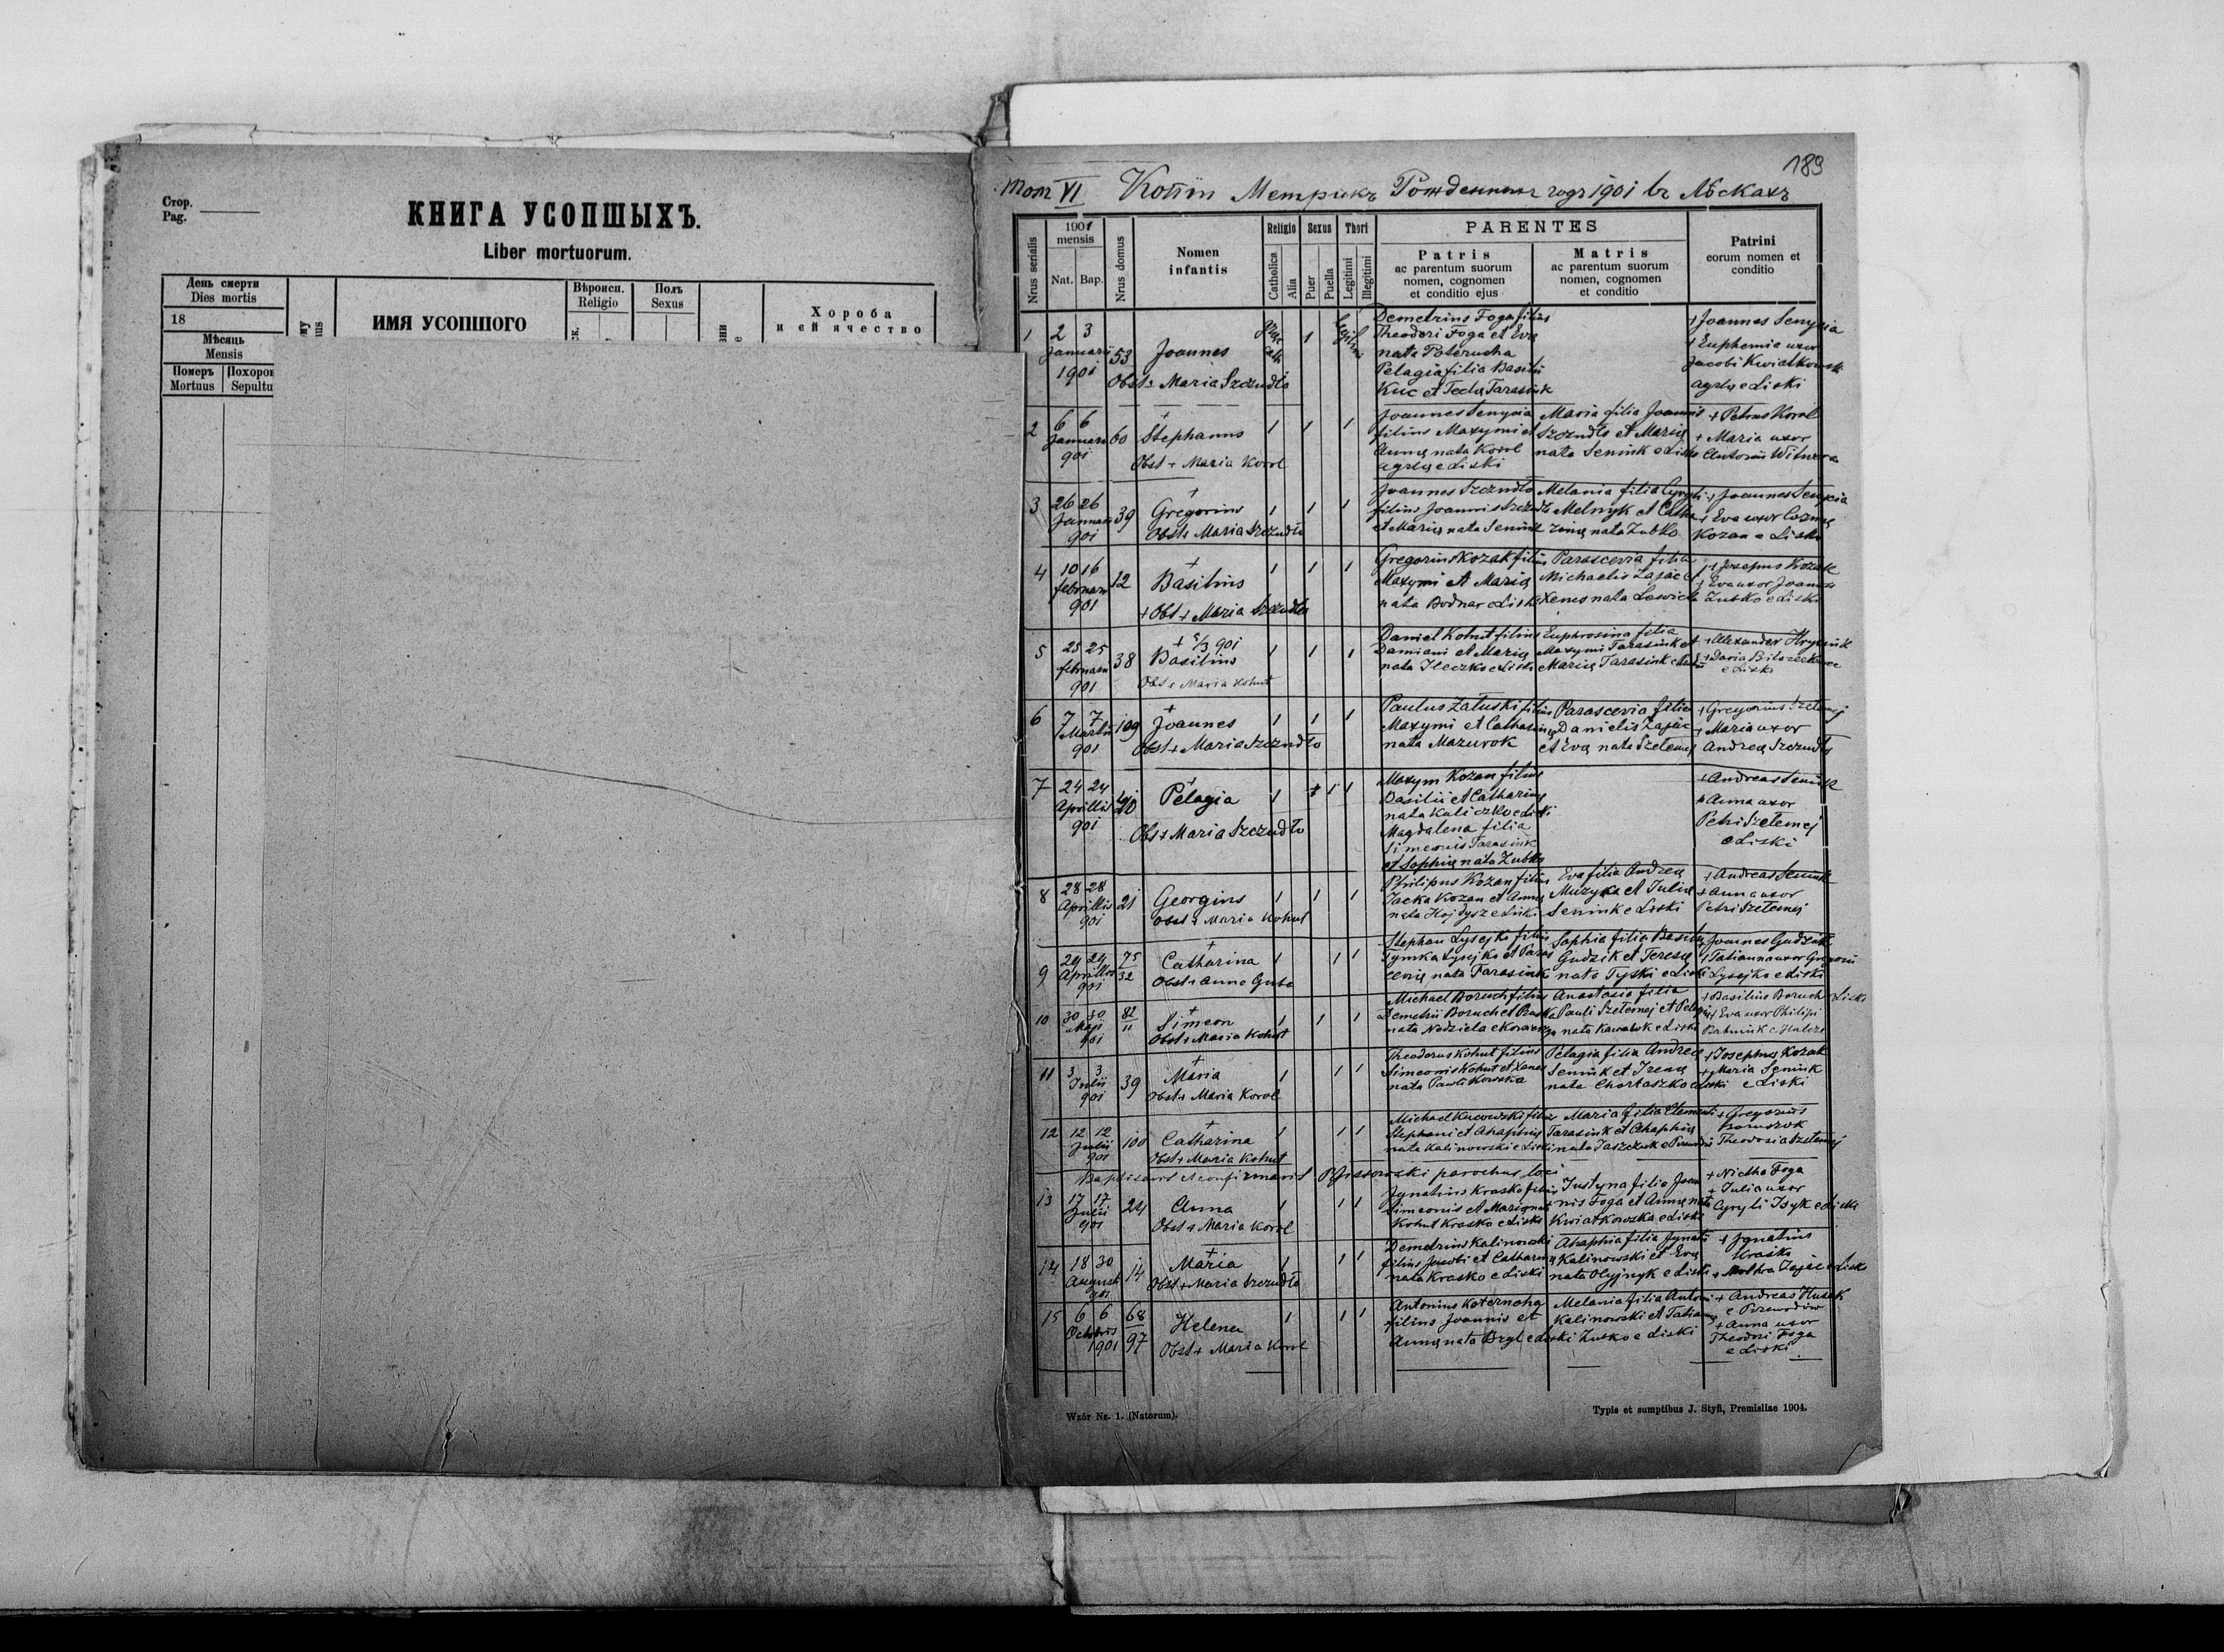 Стор.
Pag.
КНИГА УСОПШЫХЪ.
Liber mortuorum.
День смерти
Dies mortis
18
Мѣсяць
Mensis
Померъ
Mortuus
Sepultu
ИМЯ УСОПШОГО
Вѣроисп.
Religio
Полъ
Sexus
Хороба
и еѣ ячество
189
Том VI Копіи Метрикъ 1901 въ Лѣскахъ
Nrus serialis
1901
mensis
Nat. Bap.
Nrus domus
Nomen
infantis
Religio
Catholica
Alia
Sexus
Puer
Puella
Thori
Legitimi
Illegitimi
PARENTES
Patris
ac parentum suorum
nomen, cognomen
et conditio ejus
Matris
ac parentum suorum
nomen, cognomen
et conditio
Patrini
eorum nomen et
conditio
1
2 3
Januarii
1901
53
Joannes
Obst+ Maria Szczudło
Demetrius Foga filius
Theodori Foga et Evę
nata Poterucha
Pelagia filia Basilii
Kuc et Teclę Tarasiuk
+ Joannes Senycia
+ Euphemia uxor
Jacobi Kwiatkowski
agrlę e Liski
2
6 6
Januarii
901
60
+
Stephanus
Obst + Maria Korol
1 1 1
Joannes Senycia
filius Maxymi et
Annę nata Korol
agrlę e Liski
Maria filia Joannis
Szczudło et Marię
nata Seniuk e Liski
+ Petrus Korol
+ Maria uxor
Antonii
3
26 26
Januarii
901
39
+
Gregorius
Obst+ Maria Szczudło
1 1 1
Joannes Szczudło
filius Joannis Szczudło
et Marię nata Seniuk
Melania filia Cyryli
Melnyk et Catha
rinę nata Zubko
+ Joannes Senycia
+ Eva uxor Cozmę
Kozan e Liski
4
10 16
februarii
901
12
+
Basilius
+ Obst + Maria Szczudło
1 1 1
Gregorius Kozak filius
Maxymi et Marię
nata Bodnar e Liski
Parascevia filia
Michaelis Zająć et
Xenię nata
+ Josephus Kozak
+ Eva uxor Joannis
Zubko e Liski
5
25 25
februarii
901
38
+ 5/3 901
Basilius
Obst + Maria Kohut
1 1 1
Daniel Kohut filius
Damiani et Marię
nata Ileczko e Liski
Euphrosina filia
Maxymi Tarasiuk et
Marię Tarasiuk
+ Alexander
+ Daria
e Liski
6
7 7
Martii
901
109
+
Joannes
Obst + Maria Szczudło
1 1 1
Paulus Załuski filius
Maxymi et Catharinę
nata Mazurok
Parascevia filia
Danielis Zająć
et Evę nata Szełemej
+ Gregorius Szełemej
+ Maria uxor
Andreę Szczudły
7
24 24
Aprillis
901
+
Pelagia
Obst + Maria Szczudło
1 1 1
Maxym Kozan filius
Basilii et Catharinę
nata Kaliczko e Liski
Magdalena filia
Simeonis Tarasiuk
et Sophię nata Zubko
+ Andreas Seniuk
+ Anna uxor
Petri Szełemej
e Liski
8
28 28
Aprillis
901
21
Georgius
Obst + Maria Kohut
1 1 1
Philipus Kozan filius
Jacka Kozan et Annę
nata Hojdysz e Liski
Eva filia Andreę
Muzyka et Julię
Seniuk e Liski
+ Andreas Seniuk
+ Anna uxor
Petri Szełemej
9
29 29
Aprillis
901
75
32
+
Catharina
Obst + Anna Guba
1 1 1
Stephan Lysejko filius
Tymka Lysejko et Paras
cevię nata Tarasiuk
Sophia filia Basilii
Gudzik et Teresę
nata Tyski e Liski
+ Joannes Gudzik
+ Tatianna uxor Gregorii
Lysejko e Liski
10
30 30
Maji
901
82
11
+
Simeon
Obst + Maria Kohut
1 1 1
Michael Boruch filius
Demetrii Boruch et
nata Nedziela
Anastasia filia
Pauli Szełemej et Pelag
nata
+ Basilius Boruch e Liski
+ Eva uxor Philipi
11
3 3
Julii
901
39
+
Maria
Obst + Maria Korol
1 1 1
Theodorus Kohut filius
Simeonis Kohut et Xenię
nata Pawlikowska
Pelagia filia Andreę
Seniuk et Irenę
nata Chortaszko e Liski
+ Josephus Kozak
+ Maria Seniuk
e Liski
12
12 12
Julii
901
100
+
Catharina
Obst + Maria Kohut
1 1 1
Michael Kucowski filius
Stephani et Ahaphię
nata Kalinowski e Liski
Maria filia Clementi
Tarasiuk et Ahaphię
nata Jaszczuk
+ Gregorius
Theodosia Szełemej
Baptisavit et confirmavit parochus loci
13
17 17
Julii
901
24
Anna
Obst + Maria Korol
1 1 1
Ignatius Krasko filius
Simeonis et Marię nat
Kohut Krasko e Liski
Justyna filia Joan
nis Foga et Annę nata
Kwiatkowska e Liski
+ Foga
+ Julia uxor
Cyryli Isyk e Liski
14
18 30
August
901
14
+
Maria
Obst + Maria Szczudło
1 1 1
Demetrius Kalinowski
filius Jacobi et Catharinę
nata Krasko e Liski
Ahaphia filia Ignatii
Kalinowski et Evę
nata Olyjnyk e Liski
+ Ignatius
Krasko
+ Zająć e Liski
15
6 6
Octobris
1901
68
97
Helena
Obst + Maria Korol
1 1 1
Antonius Koternoha
filius Joannis et
Annę nata e Liski
Melania filia Antonii
Kalinowski et Tatianę
Zubko e Liski
+ Andreas Husak
e Przewodów
+ Anna uxor
Theodori Foga
e Liski
Wzór Nr. 1. (Natorum).
Typis et sumptibus J. Styfi, Premisliae 1904.